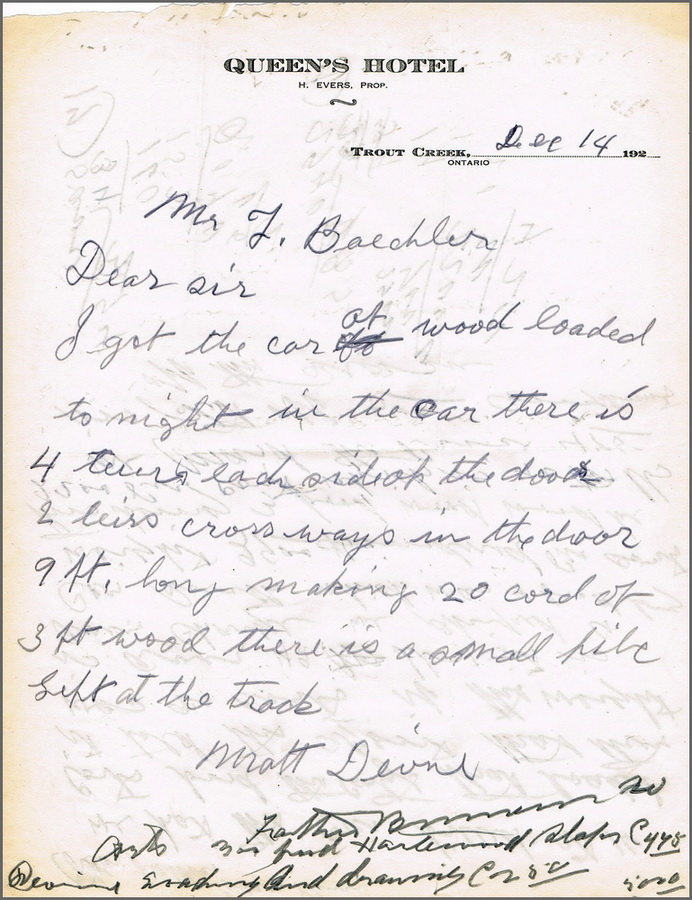 QUEEN'S HOTEL
H. EVERS, PROP.
TROUT CREEK, Dec 14 192
ONTARIO
Mr J. Baechler
Dear sir
I got the car of wood loaded
to night in the car there is
4 teirs each side of the door
2 teirs cross ways in the door
9 ft, long making 20 cord of
3 ft wood there is a small pile
Left at the track
Matt Devine
Hardwood slabs
Devine Loading and drawing